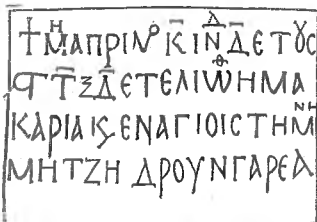 †ΜΗΑΠΡΙΛΟ Κ̅ ΙΝΔ Δ̅ ΕΤȢС
ϚΤ̅ΞΔ̅ ΕΤΕΛΙΩΘΗΜΑ
ΚΑΡΙΑ Κ͵ ΕΝΑΓΙΟΙСΤΗΜΝΗ
ΜΗΤΖΗ ΔΡΟΥΝΓΑΡΕΑ